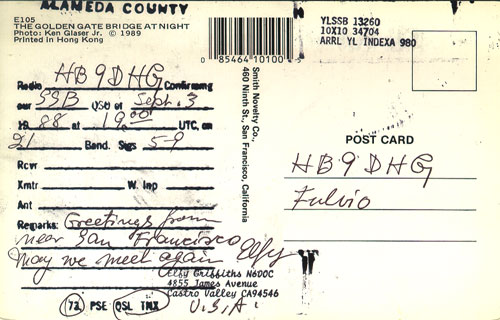 ALAMEDA COUNTY
E105
THE GOLDEN GATE BRIDGE AT NIGHT
Photo: Ken Glaser Jr. © 1989
Printed in Hong Kong
0 85464 10100
YLSSB 13260
10X10 34704
ARRL YL INDEXA 980
Smith Novelty Co.,
460 Ninth St., San Francisco, California
Radio HB9DHG Confirming
our SSB QSO of Sept. 3
1988 at 19:00 UTC, on
21 Band. Sigs 5-9
Rcvr
Xmtr W. Inp
Ant
Remarks: Greetings from
near San Francisco
May we meet again Elfy
Elfy Griffiths N6DOC
4855 James Avenue
Castro Valley CA94546
U.S.A
73 PSE QSL TNX
POST CARD
HB9DHG
Fulvio